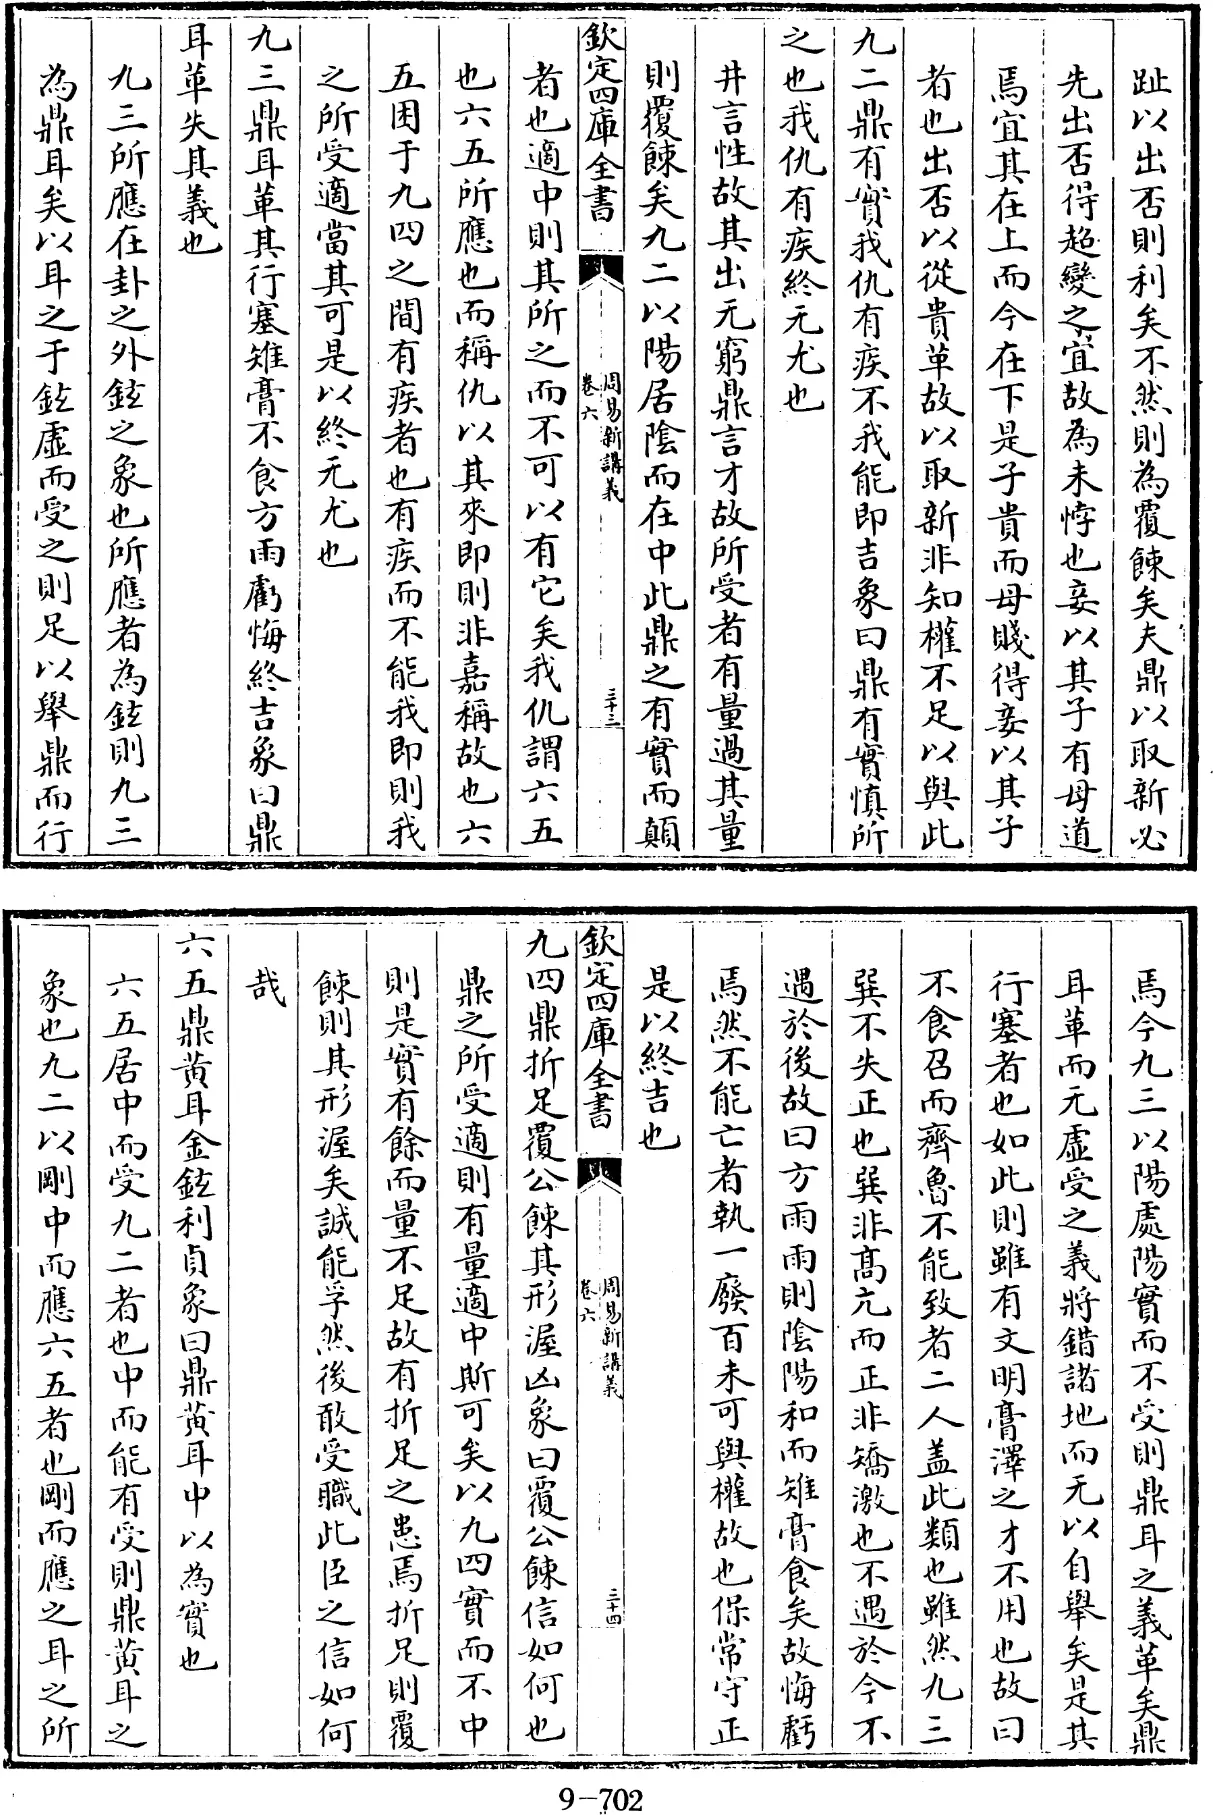 趾以出否則利矣不然則為覆餗矣夫鼎以取新必
先出否得趨變之宜故為未悖也妾以其子有母道
焉宜其在上而今在下是子貴而母賤得妾以其子
者也出否以從貴革故以取新非知權不足以與此
九二鼎有實我仇有疾不我能即吉象曰鼎有實慎所
之也我仇有疾終无尤也
井言性故其出无窮鼎言才故所受者有量過其量
則覆餗矣九二以陽居陰而在中此鼎之有實而顛
欽定四庫全書
周易新講義
卷六
三十三
者也適中則其所之而不可以有它矣我仇謂六五
也六五所應也而稱仇以其來即則非嘉稱故也六
五困于九四之間有疾者也有疾而不能我即則我
之所受適當其可是以終无尤也
九三鼎耳革其行塞雉膏不食方雨虧悔終吉象曰鼎
耳革失其義也
九三所應在卦之外鉉之象也所應者為鉉則九三
為鼎耳矣以耳之于鉉虛而受之則足以舉鼎而行
焉今九三以陽處陽實而不受則鼎耳之義革矣鼎
耳革而无虛受之義將錯諸地而无以自舉矣是其
行塞者也如此則雖有文明膏澤之才不用也故曰
不食召而齊魯不能致者二人蓋此類也雖然九三
巽不失正也巽非髙亢而正非矯激也不遇於今不
遇於後故曰方雨雨則陰陽和而雉膏食矣故悔虧
焉然不能亡者執一廢百未可與權故也保常守正
是以終吉也
欽定四庫全書
周易新講義
卷六
三十四
九四鼎折足覆公餗其形渥凶象曰覆公餗信如何也
鼎之所受適則有量適中斯可矣以九四實而不中
則是實有餘而量不足故有折足之患焉折足則覆
餗則其形渥矣誠能孚然後敢受職此臣之信如何
哉
六五鼎黄耳金鉉利貞象曰鼎黄耳中以為實也
六五居中而受九二者也中而能有受則鼎黄耳之
象也九二以剛中而應六五者也剛而應之耳之所
9-702